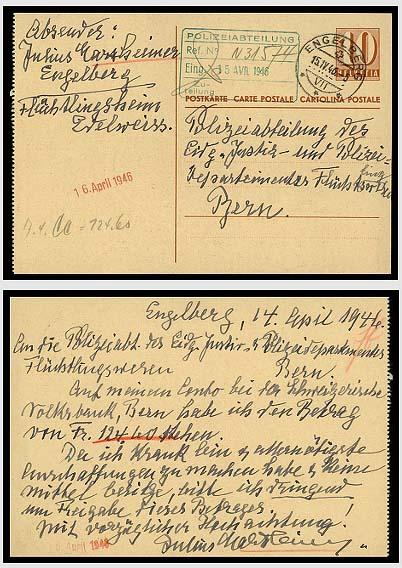 Absender:
Julius
Engelberg
Flüchtlingsheim
Edelweiss.
16. April 1946
= 124.60
POLIZEIABTEILUNG
Ref. No N31574
Eing. 15 AVR. 1946
Zu-
teilung
ENGELBERG
15.IV.46
VII
10
HELVETIA
POSTKARTE CARTE POSTALE CARTOLINA POSTALE
Polizeiabteilung des
Eidg. Justiz- und Polizei-
Departementes
Bern.
Engelberg, 14. April 1946.
An die Polizeiabt. des Eidg. Justiz- & Polizeidepartementes
Flüchtlingswesen Bern.
Auf meinem Conto bei der Schweizerische
Volksbank, Bern habe ich den Betrag
von Fr. 124.60 stehen.
Da ich krank bin & allernötigste
Anschaffungen zu machen habe & keine
mittel besitze, bitte ich dringend
um Freigabe dieses Betrages!
Mit vorzüglicher Hochachtung!
Julius
April 1946